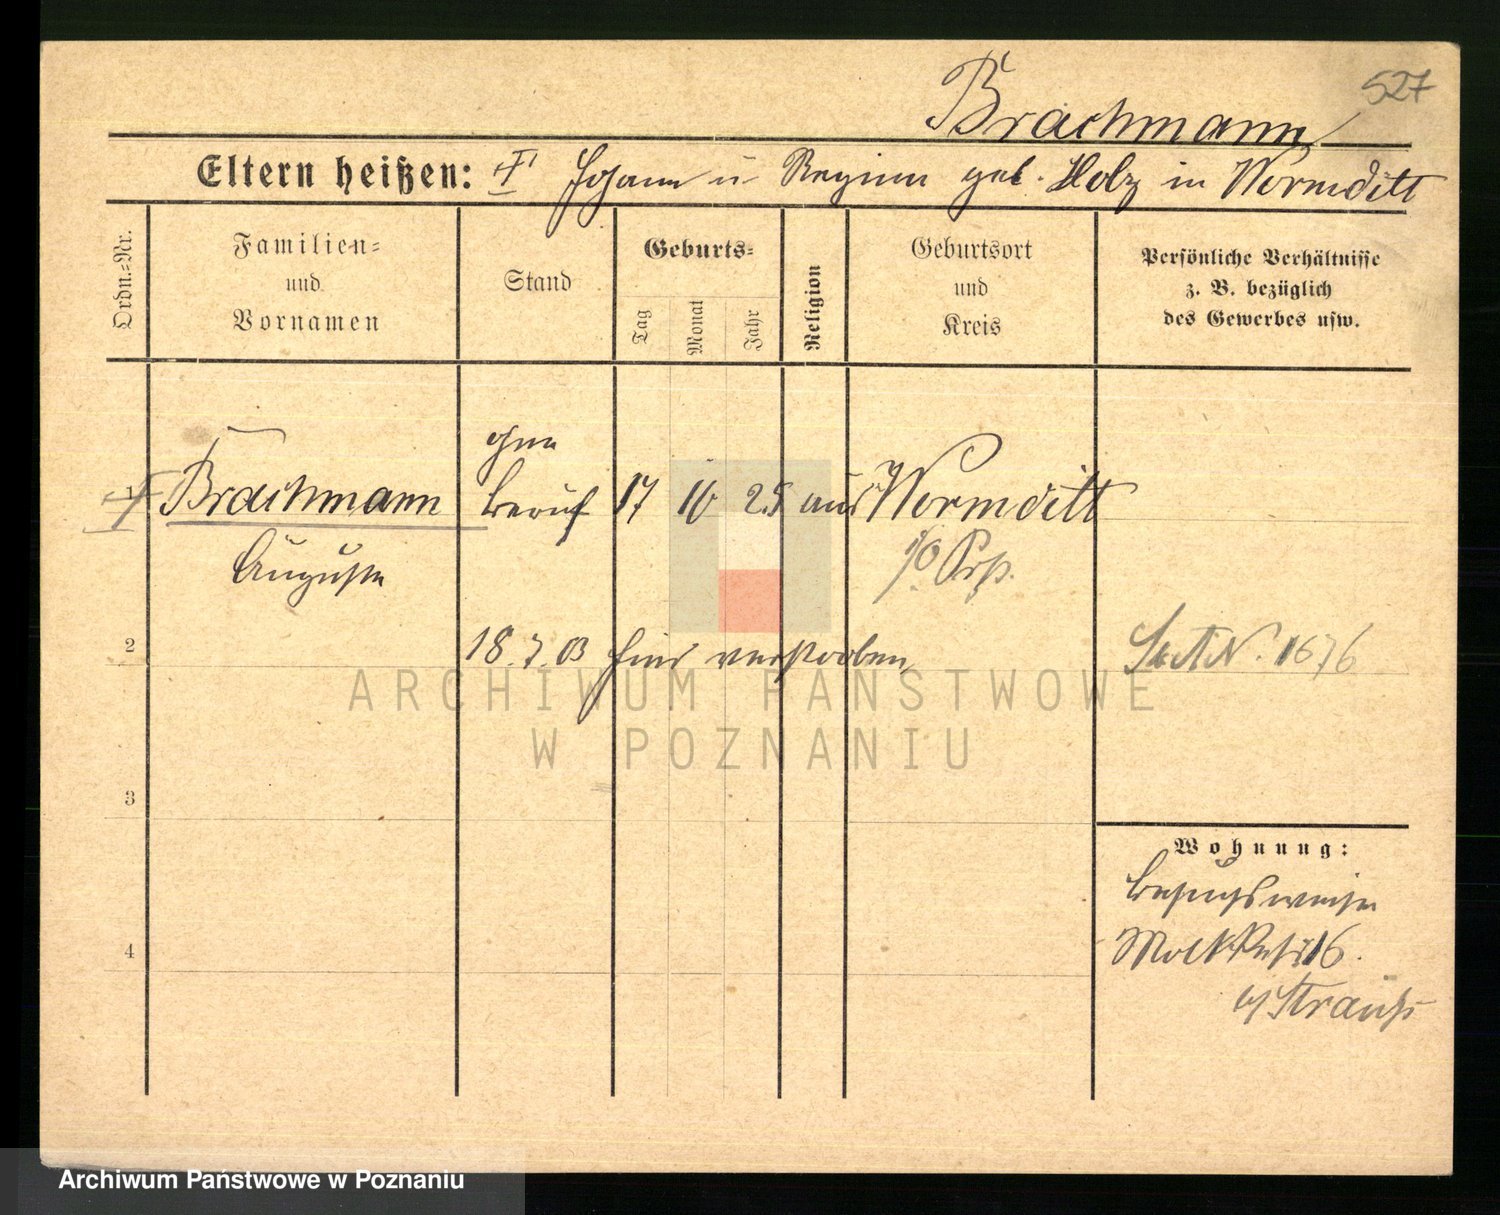 527
Brachmann
Eltern heißen: Johann u Regina geb. Holz in Wormditt
Ordn.-Nr.
Familien-
und
Vornamen
Stand
Geburts-
Tag
Monat
Jahr
Religion
Geburtsort
und
Kreis
Persönliche Verhältnisse
z. B. bezüglich
des Gewerbes usw.
1 Brachmann ohne Beruf 17 10 25 aus Wormditt
Auguste
2 18.7.03 hier verstorben
St A N. 1676
ARCHIWUM PAŃSTWOWE
W POZNANIU
3
Wohnung:
besuchsweise
4
b/ Strauß
Archiwum Państwowe w Poznaniu